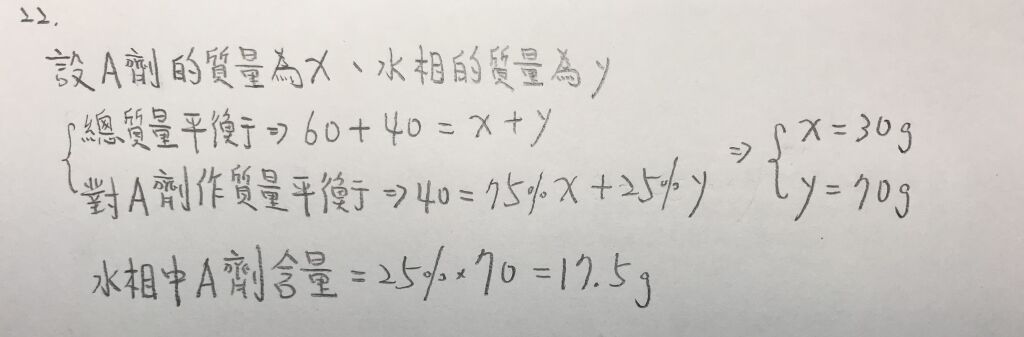 22.
設A劑的質量為x、水相的質量為y
總質量平衡⇒60+40=x+y
對A劑作質量平衡⇒40=75%x+25%y
⇒{x=30g
y=70g
水相中A劑含量=25%×70=17.5g